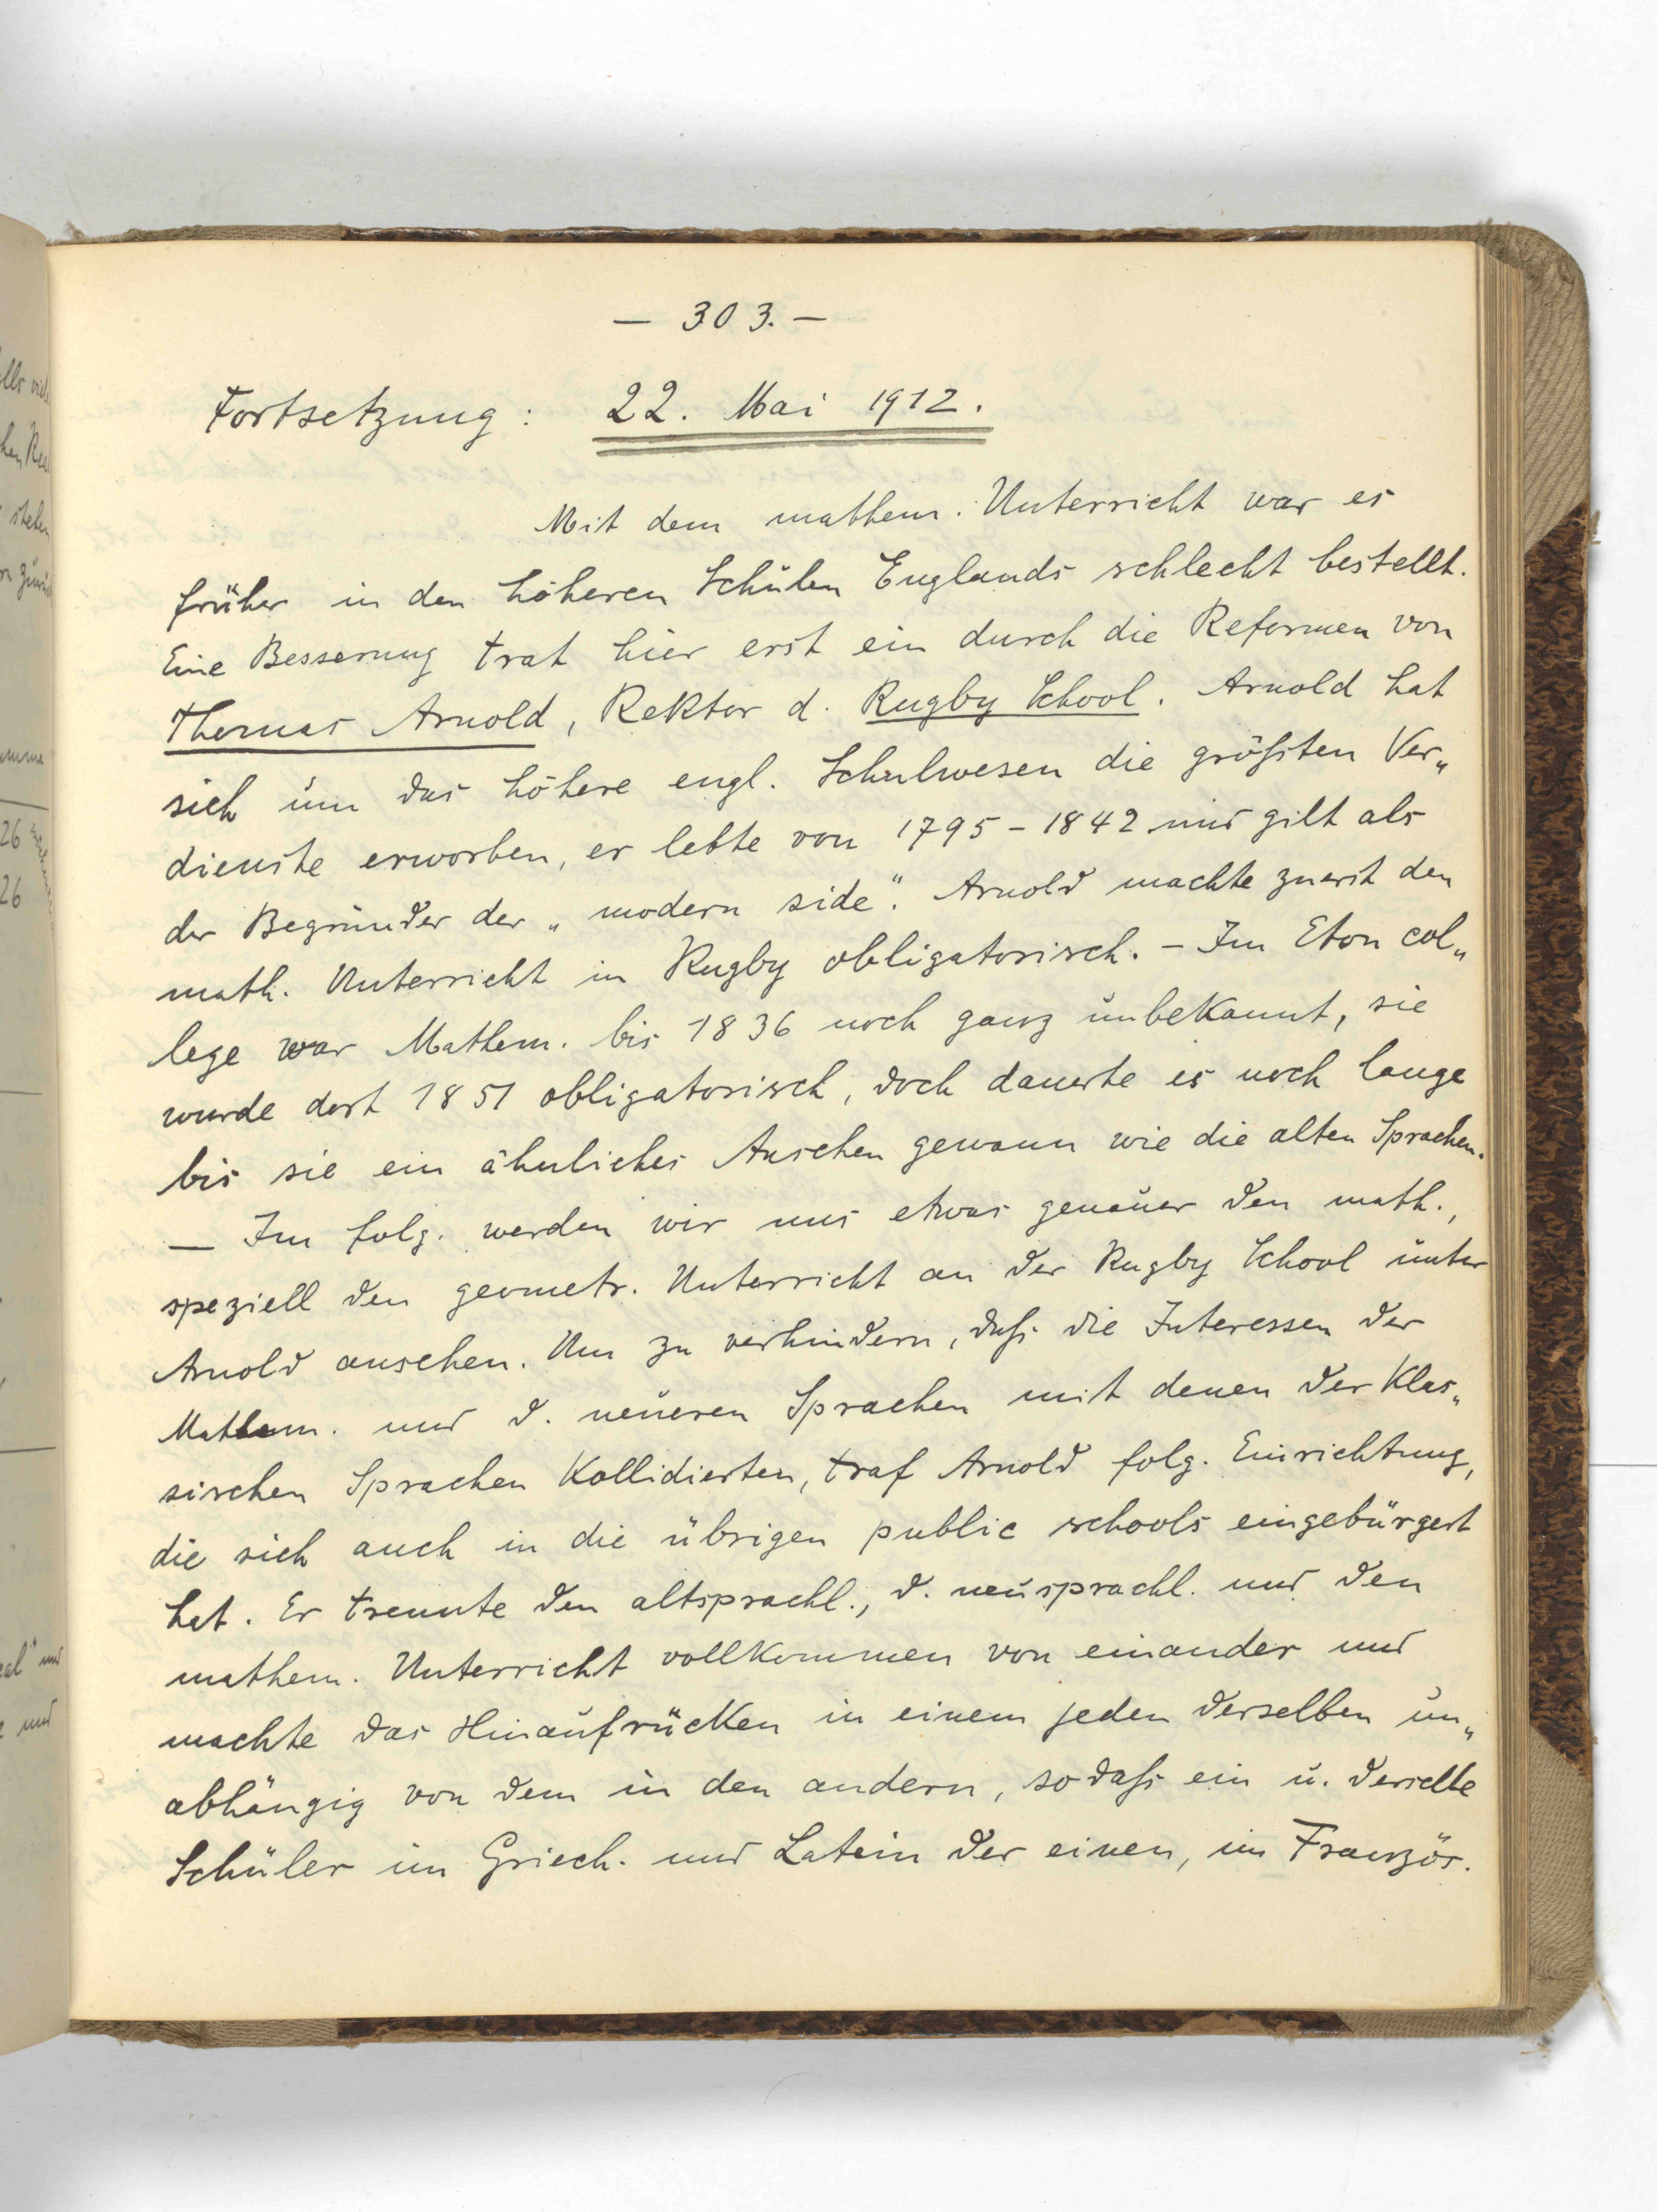 — 303. —
Fortsetzung: 22. Mai 1912.
Mit dem mathem. Unterricht war es
früher in den höheren Schulen Englands schlecht bestellt.
Eine Besserung trat hier erst ein durch die Reformen von
Thomas Arnold, Rektor d. Rugby School. Arnold hat
sich um das höhere engl. Schulwesen die größten Ver„
dienste erworben, er lebte von 1795 – 1842 und gilt als
der Begründer der „modern side“. Arnold machte zuerst den
math. Unterricht in Rugby obligatorisch. – Im Eton col„
lege war Mathem. bis 1836 noch ganz unbekannt, sie
wurde dort 1851 obligatorisch, doch dauerte es noch lange
bis sie ein ähnliches Ansehen gewann wie die alten Sprachen.
— Im folg. werden wir uns etwas genauer den math.,
speziell den geometr. Unterricht an der Rugby School unter
Arnold ansehen. Um zu verhindern, daß die Interessen der
Mathem. und d. neueren Sprachen mit denen der Klas„
sischen Sprachen Kollidierten, traf Arnold folg. Einrichtung,
die sich auch in die übrigen public schools eingebürgert
hat. Er trennte den altsprachl., d. neusprachl. und den
mathem. Unterricht vollkommen von einander und
machte das Hinaufrücken in einem jeden derselben un„
abhängig von dem in den andern, sodaß ein u. derselbe
Schüler im Griech. und Latein der einen, im Französ.
26
26